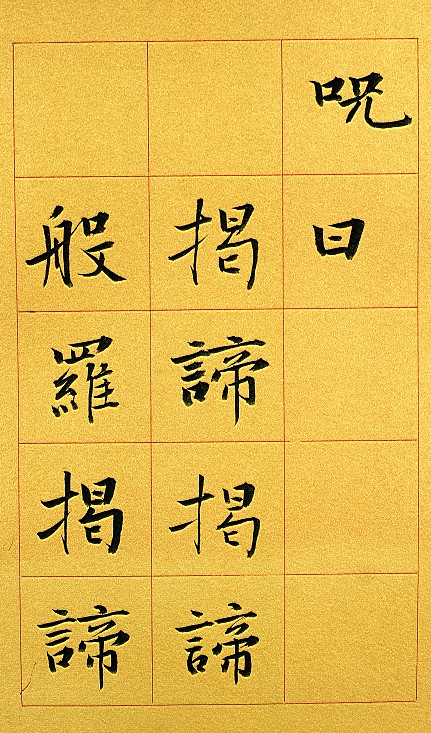 呪曰
揭諦揭諦
般羅揭諦